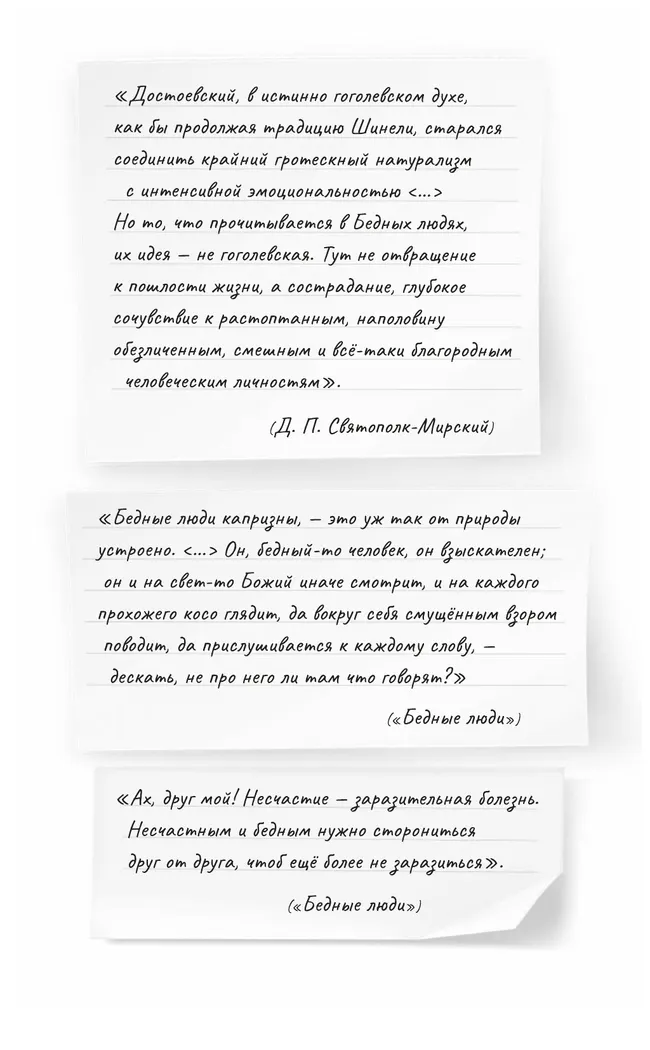 «Достоевский, в истинно гоголевском духе,
как бы продолжая традицию Шинели, старался
соединить крайний гротескный натурализм
с интенсивной эмоциональностью <...>
Но то, что прочитывается в Бедных людях,
их идея — не гоголевская. Тут не отвращение
к пошлости жизни, а сострадание, глубокое
сочувствие к растоптанным, наполовину
обезличенным, смешным и всё-таки благородным
человеческим личностям».
(Д. П. Святополк-Мирский)
«Бедные люди капризны, — это уж так от природы
устроено. <...> Он, бедный-то человек, он взыскателен;
он и на свет-то Божий иначе смотрит, и на каждого
прохожего косо глядит, да вокруг себя смущённым взором
поводит, да прислушивается к каждому слову, —
дескать, не про него ли там что говорят?»
(«Бедные люди»)
«Ах, друг мой! Несчастие — заразительная болезнь.
Несчастным и бедным нужно сторониться
друг от друга, чтоб ещё более не заразиться».
(«Бедные люди»)